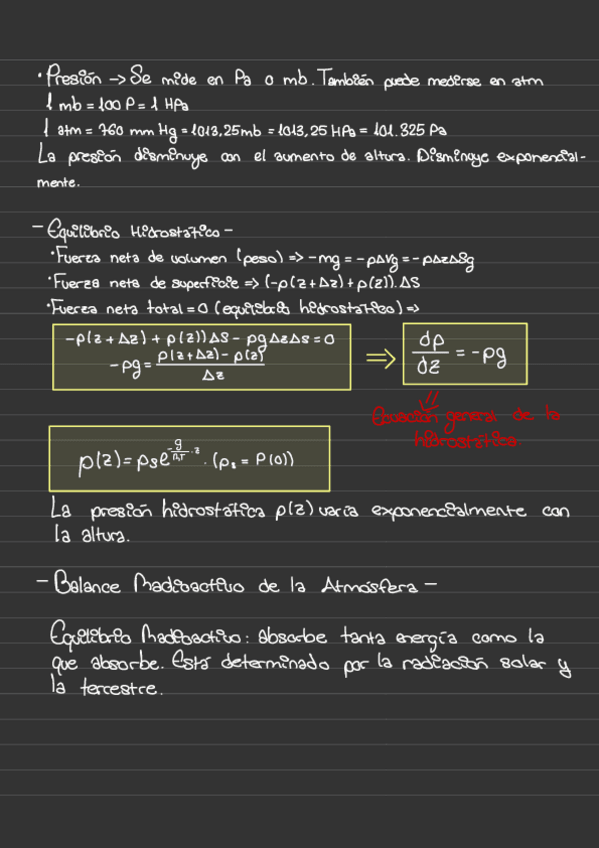 · Presión -> Se mide en Pa o mb. También puede medirse en atm
1 mb = 100 P = 1 HPa
1 atm = 760 mm Hg = 1013,25mb = 1013,25 HPa = 101.325 Pa
La presión disminuye con el aumento de altura. Disminuye exponencial-
mente.
- Equilibrio Hidrostático -
· Fuerza neta de volumen (peso) => -mg = -ρΔVg = -ρΔzΔSg
· Fuerza neta de superficie => (-p(z+Δz)+p(z)).ΔS
· Fuerza neta total = 0 (equilibrio hidrostático) =>
-p(z+Δz)+p(z))ΔS - ρgΔzΔS = 0
-ρg = (p(z+Δz)-p(z))/Δz
=> dp/dz = -ρg
Ecuación general de la
hidrostática.
p(z) = pse^(-g/RdT · z) . (ps = P(0))
La presión hidrostática p(z) varía exponencialmente con
la altura.
- Balance Radioactivo de la Atmósfera -
Equilibrio Radioactivo: absorbe tanta energía como la
que absorbe. Está determinado por la radiación solar y
la terrestre.